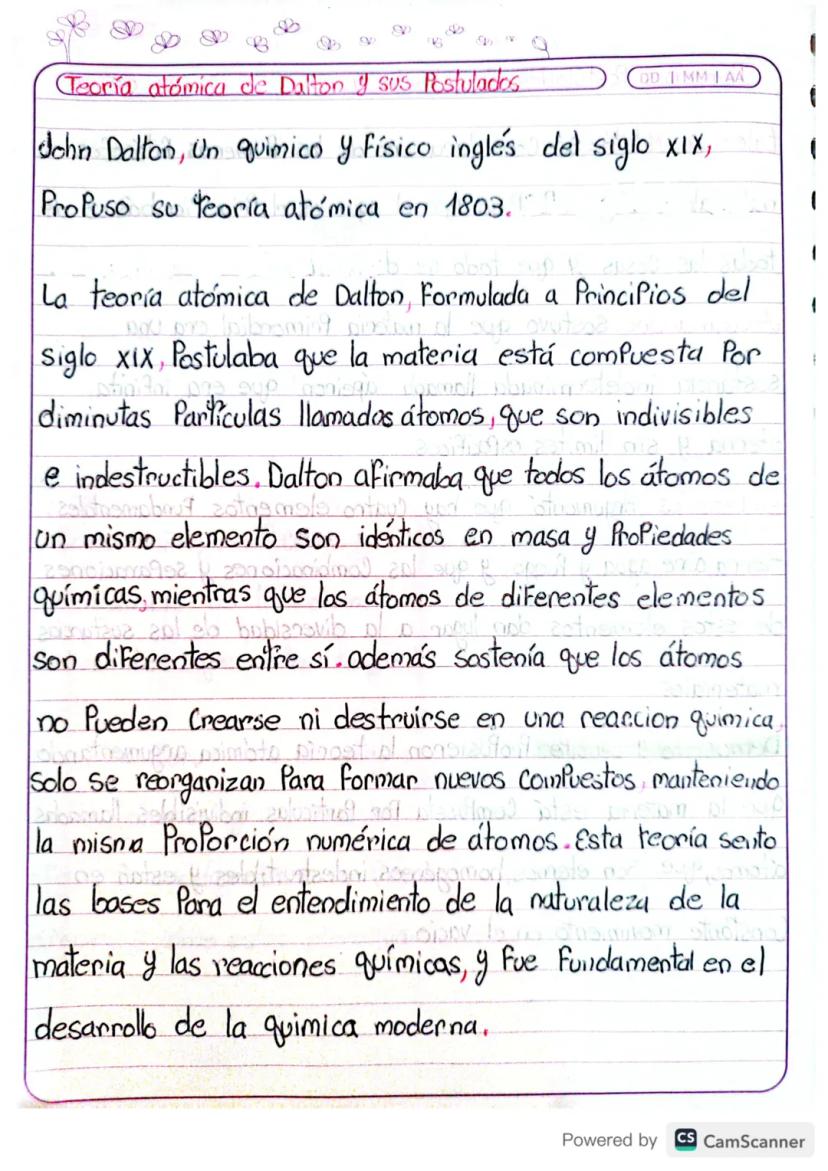 Teoría atómica de Dalton y sus Postulados
DD | MM | AA
John Dalton, Un quimico y Físico inglés del siglo XIX,
Propuso su teoría atómica en 1803.
La teoría atómica de Dalton, Formulada a Principios del
siglo XIX, Postulaba que la materia está compuesta Por
diminutas Partículas llamados átomos, que son indivisibles
e indestructibles. Dalton afirmaba que todos los átomos de
un mismo elemento son idénticos en masa y Propiedades
químicas, mientras que los átomos de diferentes elementos
son diferentes entre sí. además Sostenía que los átomos
no Pueden Crearse ni destruirse en una reaccion quimica,
Solo se reorganizan Para Formar nuevos compuestos, manteniendo
la misma Proporción numérica de átomos. Esta teoría sento
las bases Para el entendimiento de la naturaleza de la
materia y las reacciones químicas, y Fue Fundamental en el
desarrollo de la quimica moderna.
Powered by CS CamScanner